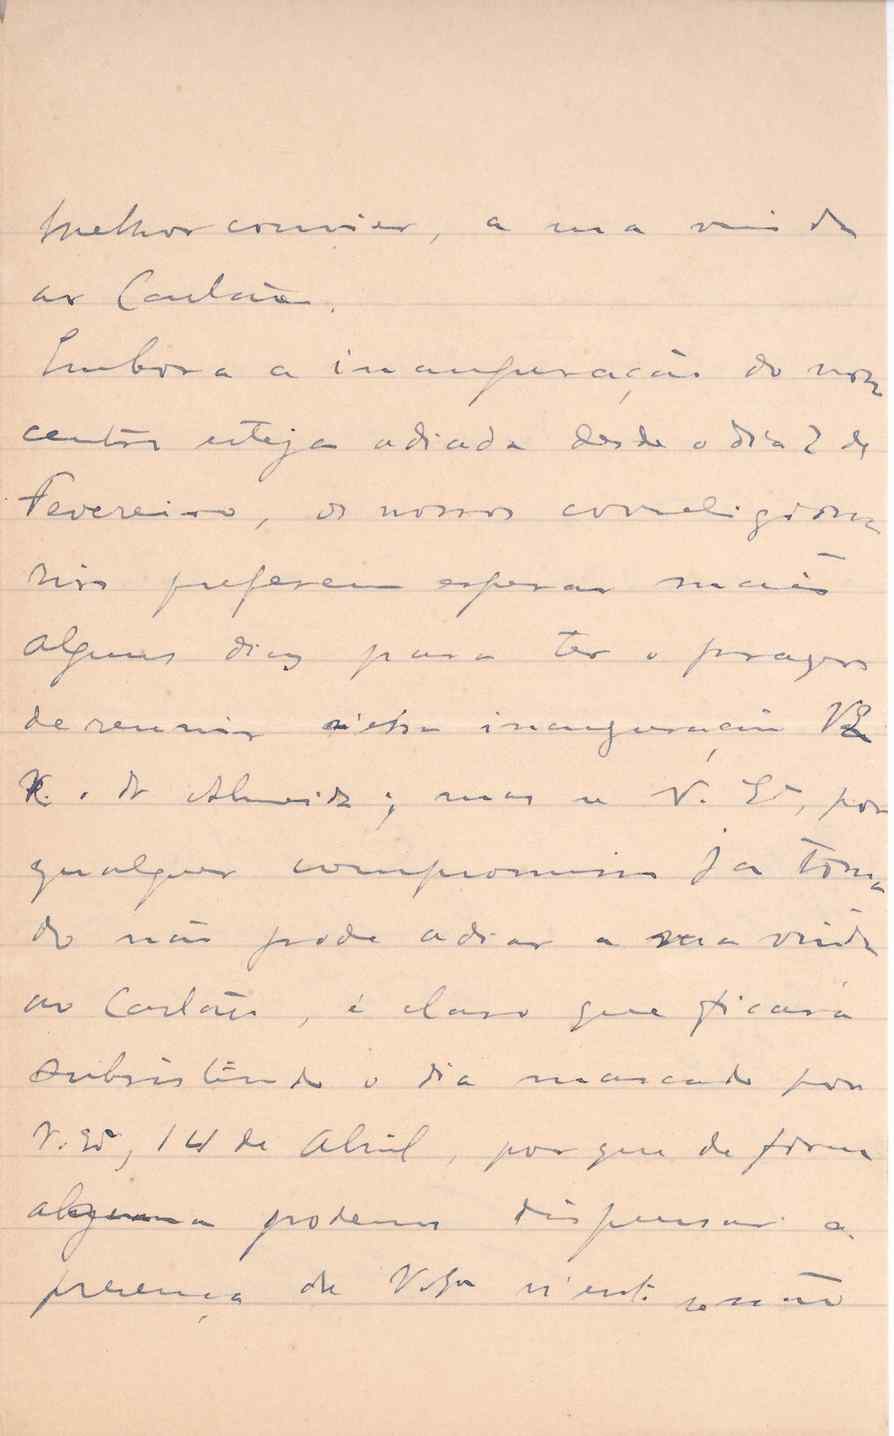 melhor convier, a sua vinda
ao Cartaxo.
Embora a inauguração do nosso
centro esteja adiada desde o dia 2 de
Fevereiro, os nossos correligiona
rios preferem esperar mais
alguns dias para ter o prazer
de reunir n'essa inauguração V. Ex
e. dr Almeida; mas se V. Ex, por
qualquer compromisso ja toma
do não pode adiar a sua vinda
ao Cartaxo, é claro que ficará
subsistindo o dia marcado por
V. Ex, 14 de Abril, porque de forma
alguma podemos dispensar a
presença de V. Ex n'esta